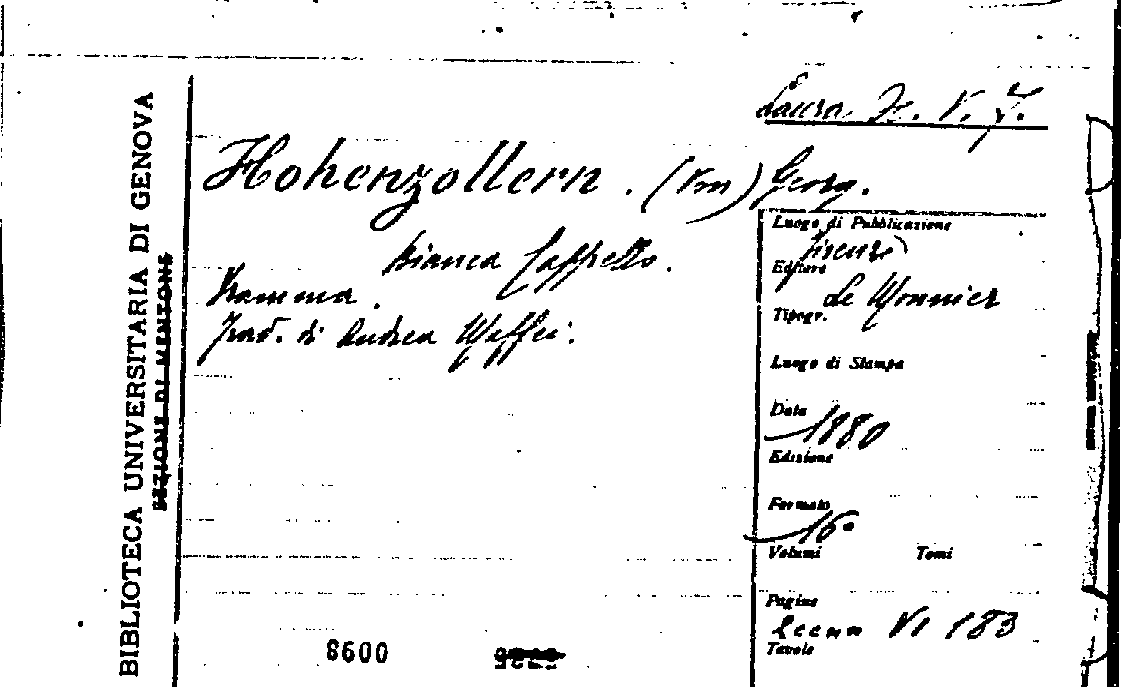 Laura Z. V. 7.
Hohenzollern. (von) Georg.
Bianca Cappello.
Dramma.
Trad. di Andrea Maffei.
Luogo di Pubblicazione
Firenze
Editore
Le Monnier
Tipogr.
Luogo di Stampa
Data
1880
Edizione
Formato
16°
Volumi Tomi
Pagine
VI 183
Tavole
8600
BIBLIOTECA UNIVERSITARIA DI GENOVA
SEZIONE DI MENTONE